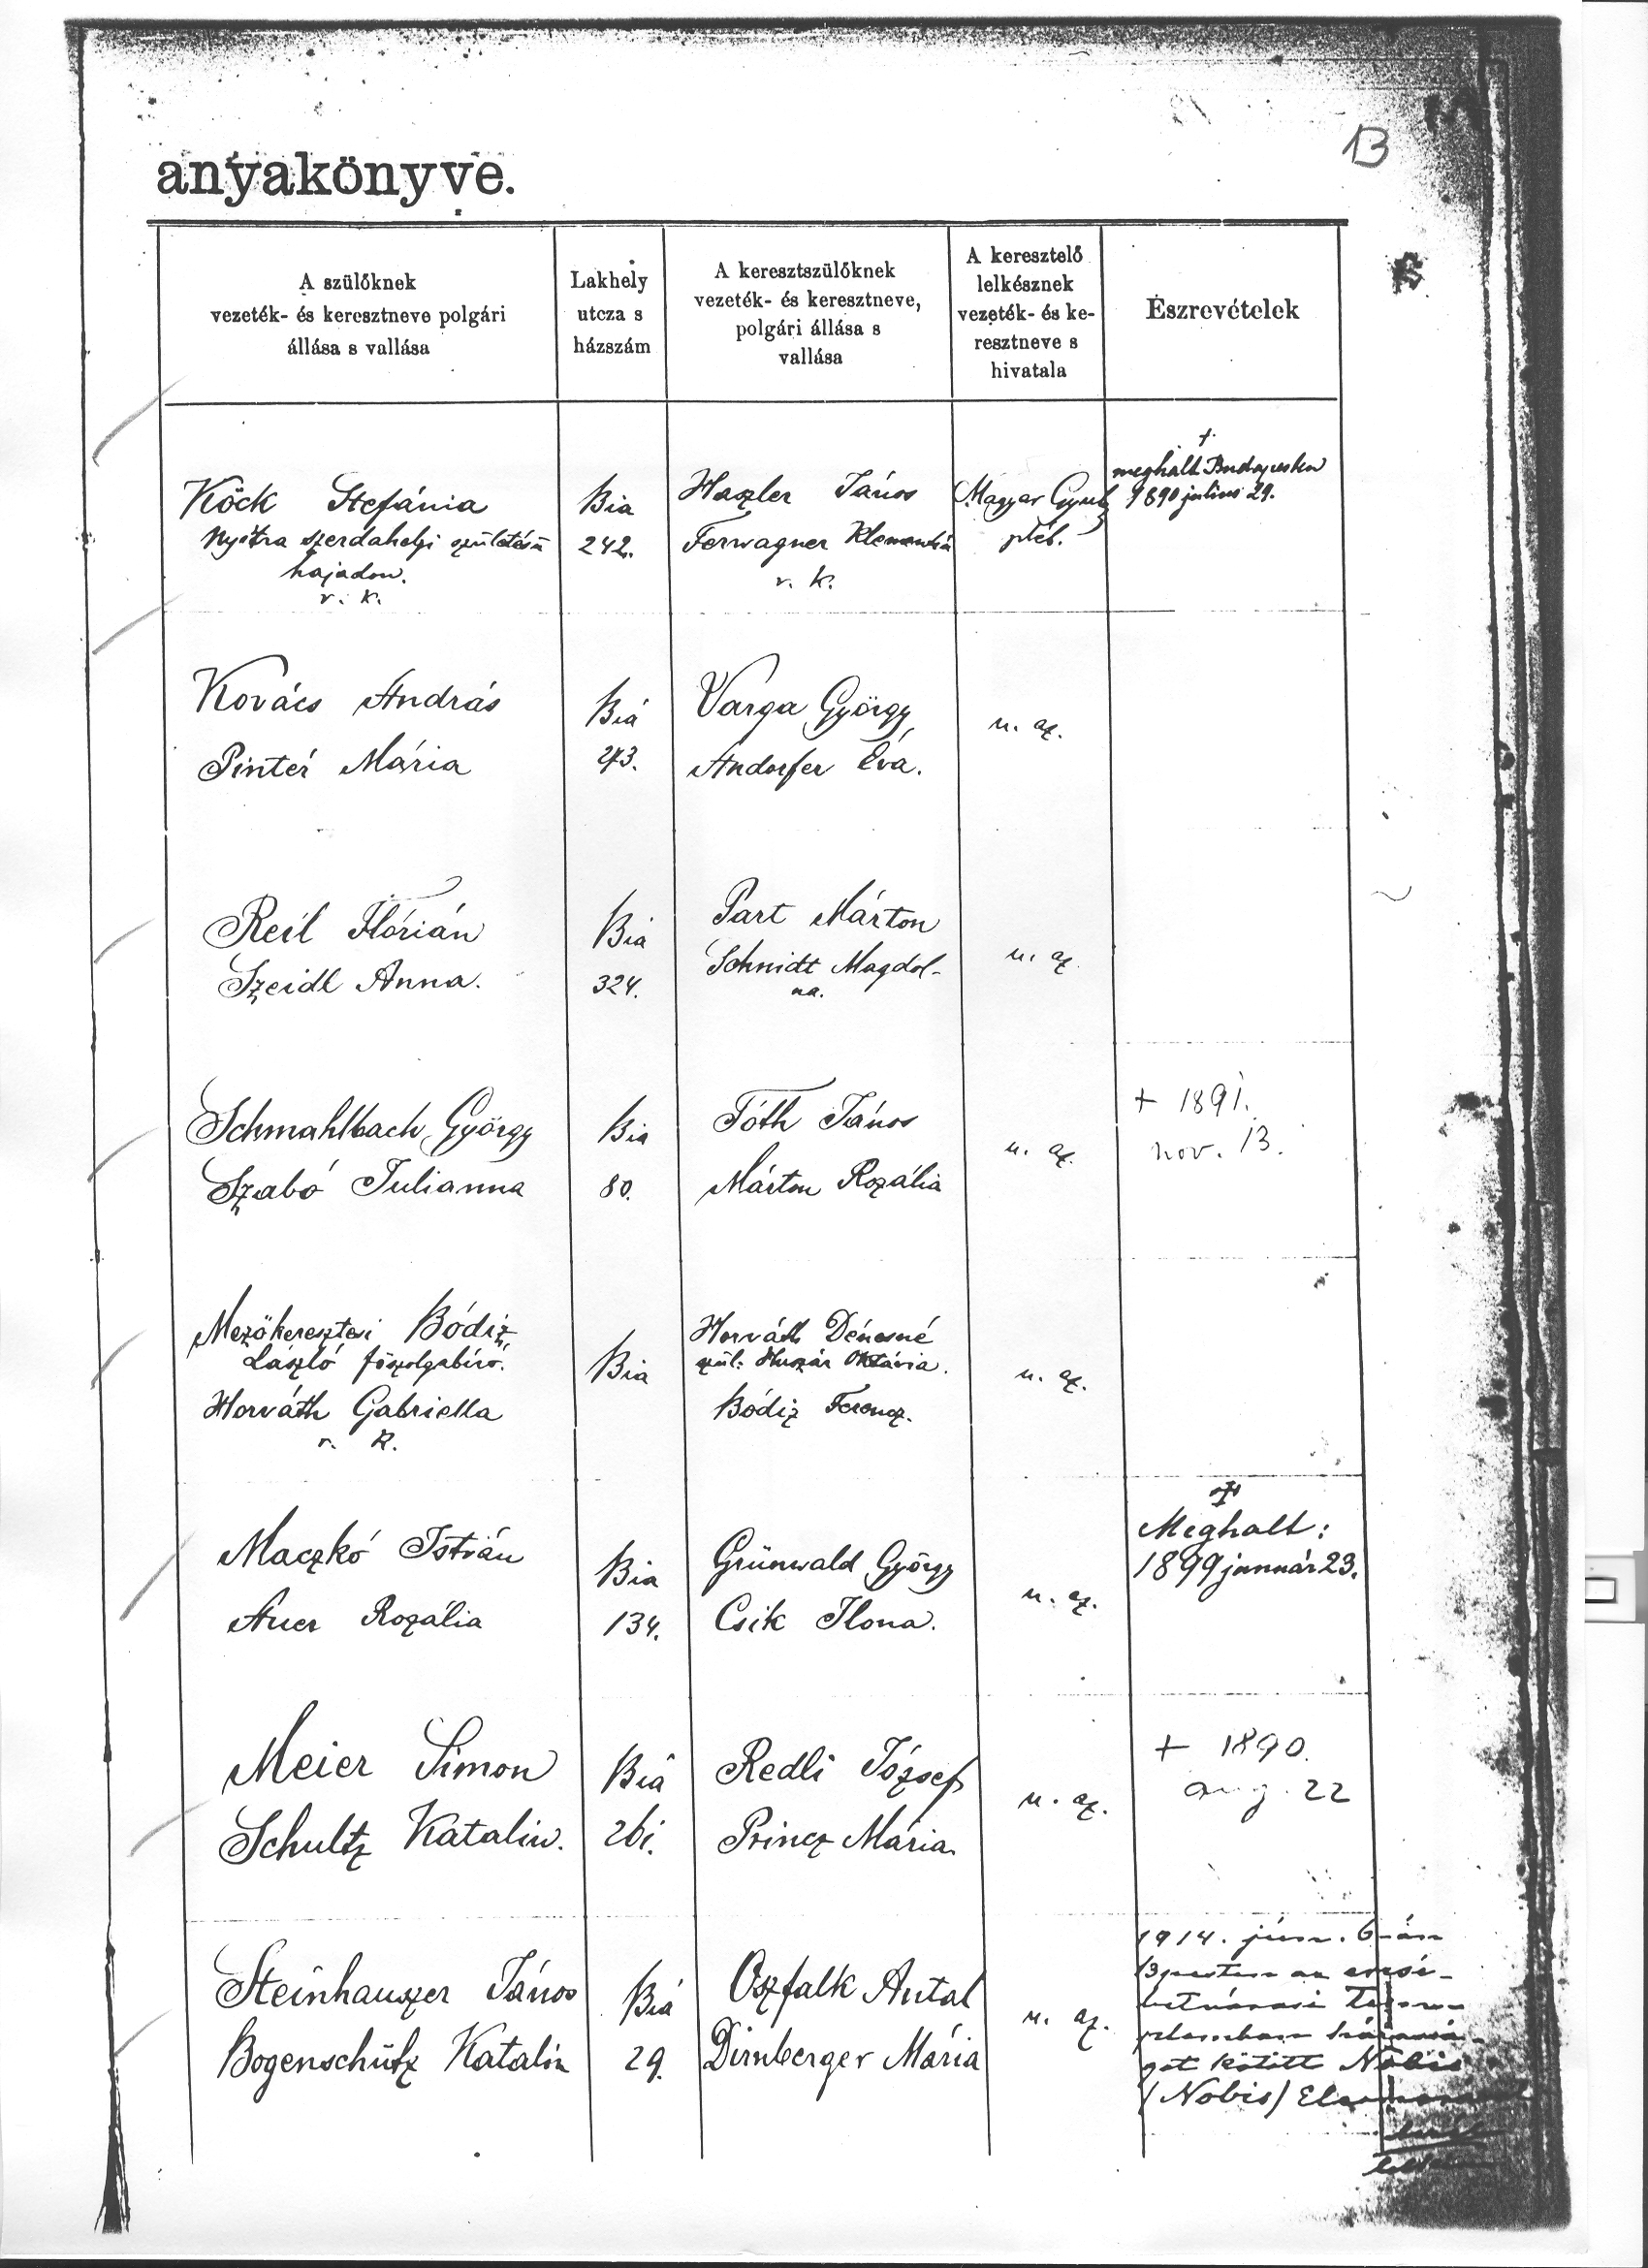 13
anyakönyve.
A szülőknek
vezeték- és keresztneve polgári
állása s vallása
Lakhely
utcza s
házszám
A keresztszülőknek
vezeték- és keresztneve,
polgári állása s
vallása
A keresztelő
lelkésznek
vezeték- és ke-
resztneve s
hivatala
Észrevételek
Köck Stefánia
Nyitra szerdahelyi születésü
hajadon.
r. k.
Bia
242.
Haszler János
Ferwagner Klementin
r. k.
Magyar
pléb.
†
meghalt Budapesten
1890 julius 29.
Kovács András
Pintér Mária
Bia
273.
Varga György
Andorfer Éva.
u. az.
Reil Flórián
Szeidl Anna.
Bia
324.
Part Márton
Schmidt Magdol-
na.
u. az.
Schmahlbach György
Szabó Julianna
Bia
80.
Tóth János
Márton Rozália
u. az.
+ 1891.
nov. 13.
Mezőkeresztesi Bódiz
László főszolgabíró.
Horváth Gabriella
r. k.
Bia
Horváth Dénesné
szül: Huszár Oktávia.
Bódiz Ferencz.
u. az.
Maczkó István
Auer Rozália
Bia
134.
Grünwald György
Csik Ilona.
u. az.
†
Meghalt:
1899 január 23.
Meier Simon
Schultz Katalin.
Bia
261.
Redli József
Princz Mária.
u. az.
+ 1890.
aug. 22
Steinhauszer János
Bogenschütz Katalin
Bia
29.
Oszfalk Antal
Dirnberger Mária
u. az.
1914. jún. 6-án
Bpesten az erzsé-
betvárosi tem-
plomban házassá-
got kötött Nobis
(Nobis)